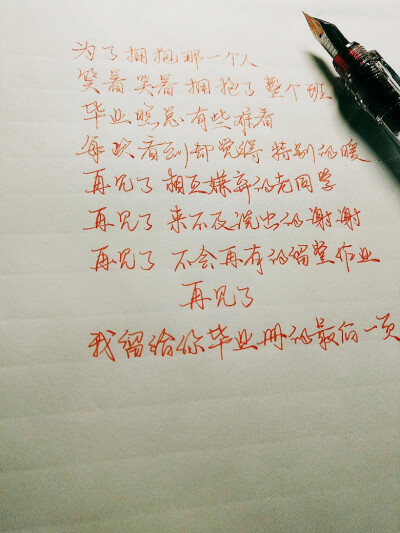 为了拥抱那一个人
笑着笑着拥抱了整个班
毕业照总有些难看
每次看到却觉得特别的暖
再见了 相互嫌弃的老同学
再见了 来不及说出的谢谢
再见了 不会再有的留堂作业
再见了
我留给你毕业册的最后一页